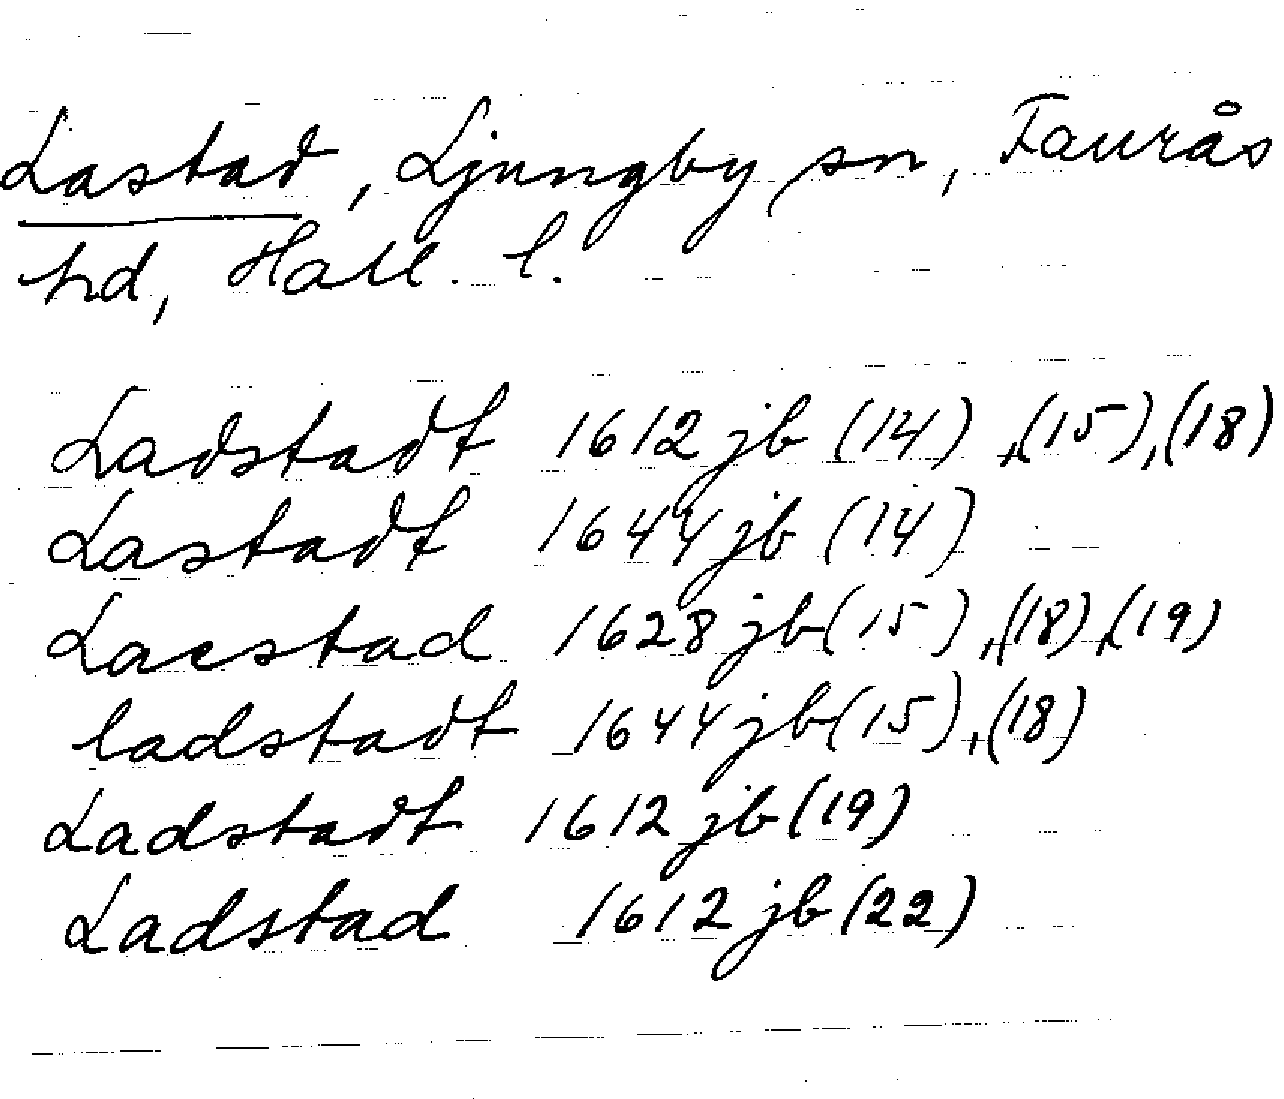 Lastad, Ljungby sn, Faurås
hd, Hall. l.
Ladstadt 1612 jb (14), (15), (18)
Lastadt 1644 jb (14)
Laestad 1628 jb (15), (18), (19)
ladstadt 1644 jb (15), (18)
Ladstadt 1612 jb (19)
Ladstad 1612 jb (22)